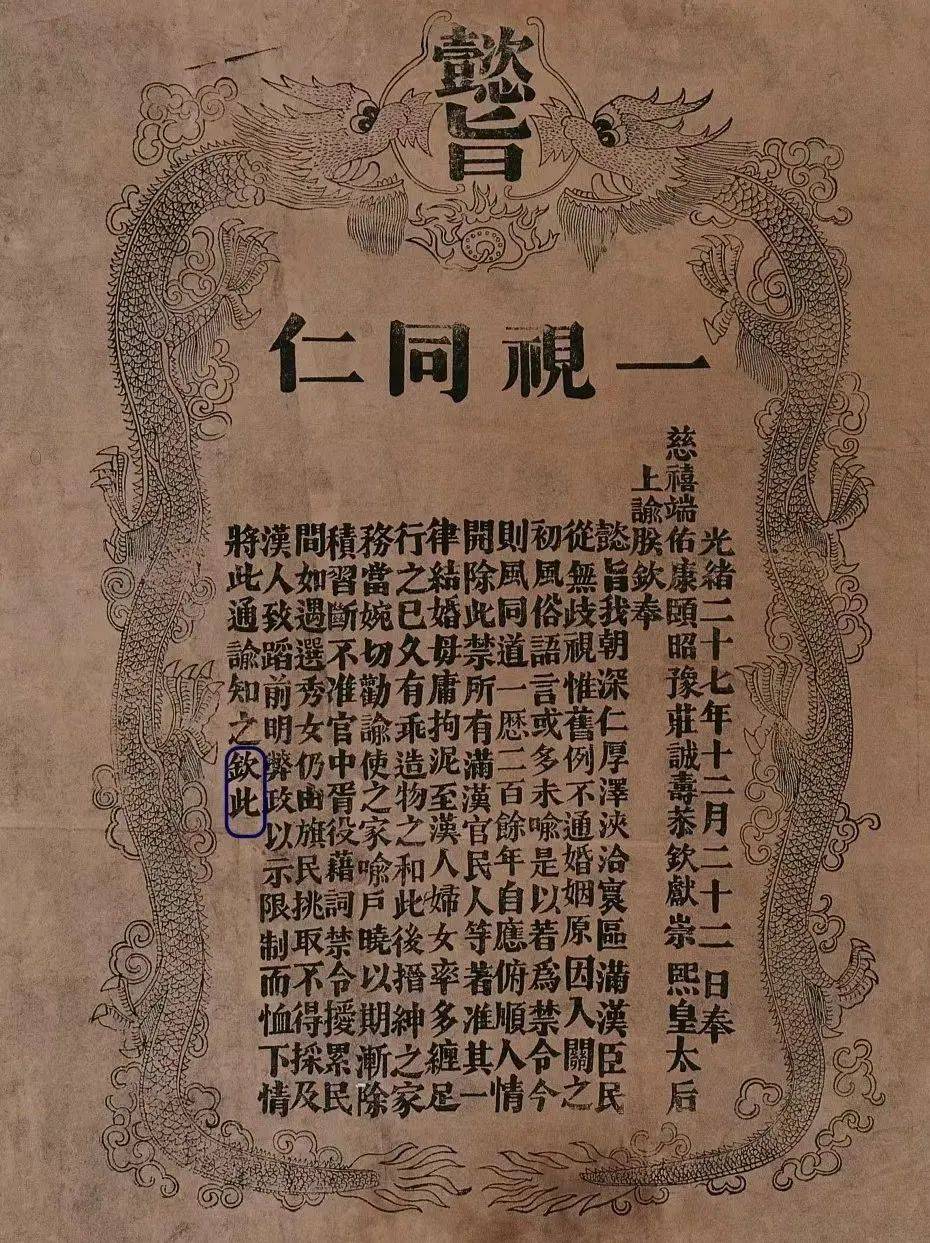 懿旨
一視同仁
光緒二十七年十二月二十二日奉
上諭朕欽奉
慈禧端佑康頤昭豫莊誠壽恭欽獻崇熙皇太后
懿旨我朝深仁厚澤浹洽寰區滿漢臣民
從無歧視惟舊例不通婚姻原因入關之
初風俗語言或多未喻是以著爲禁令今
則風同道一歷二百餘年自應俯順人情
開除此禁所有滿漢官民人等著准其一
律結婚毋庸拘泥至漢人婦女率多纏足
行之已久有乖造物之和此後搢紳之家
務當婉切勸諭使之家喻戶曉以期漸除
積習斷不准官中胥役藉詞禁令擾累民
間如遇選秀女仍由旗民挑取不得採及
漢人致蹈前明弊政以示限制而恤下情
將此通諭知之欽此